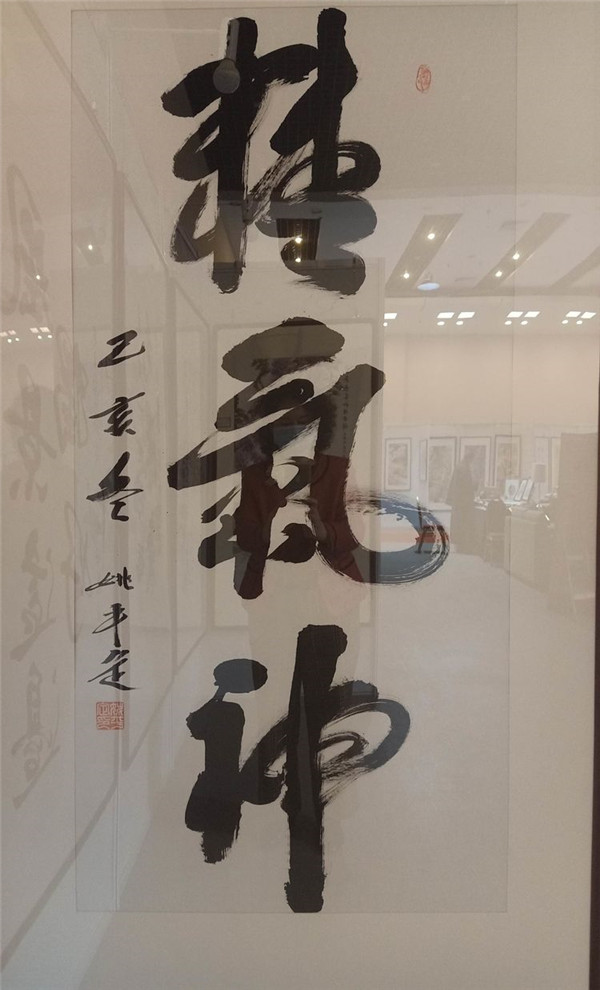 精氣神
己亥冬 姚平